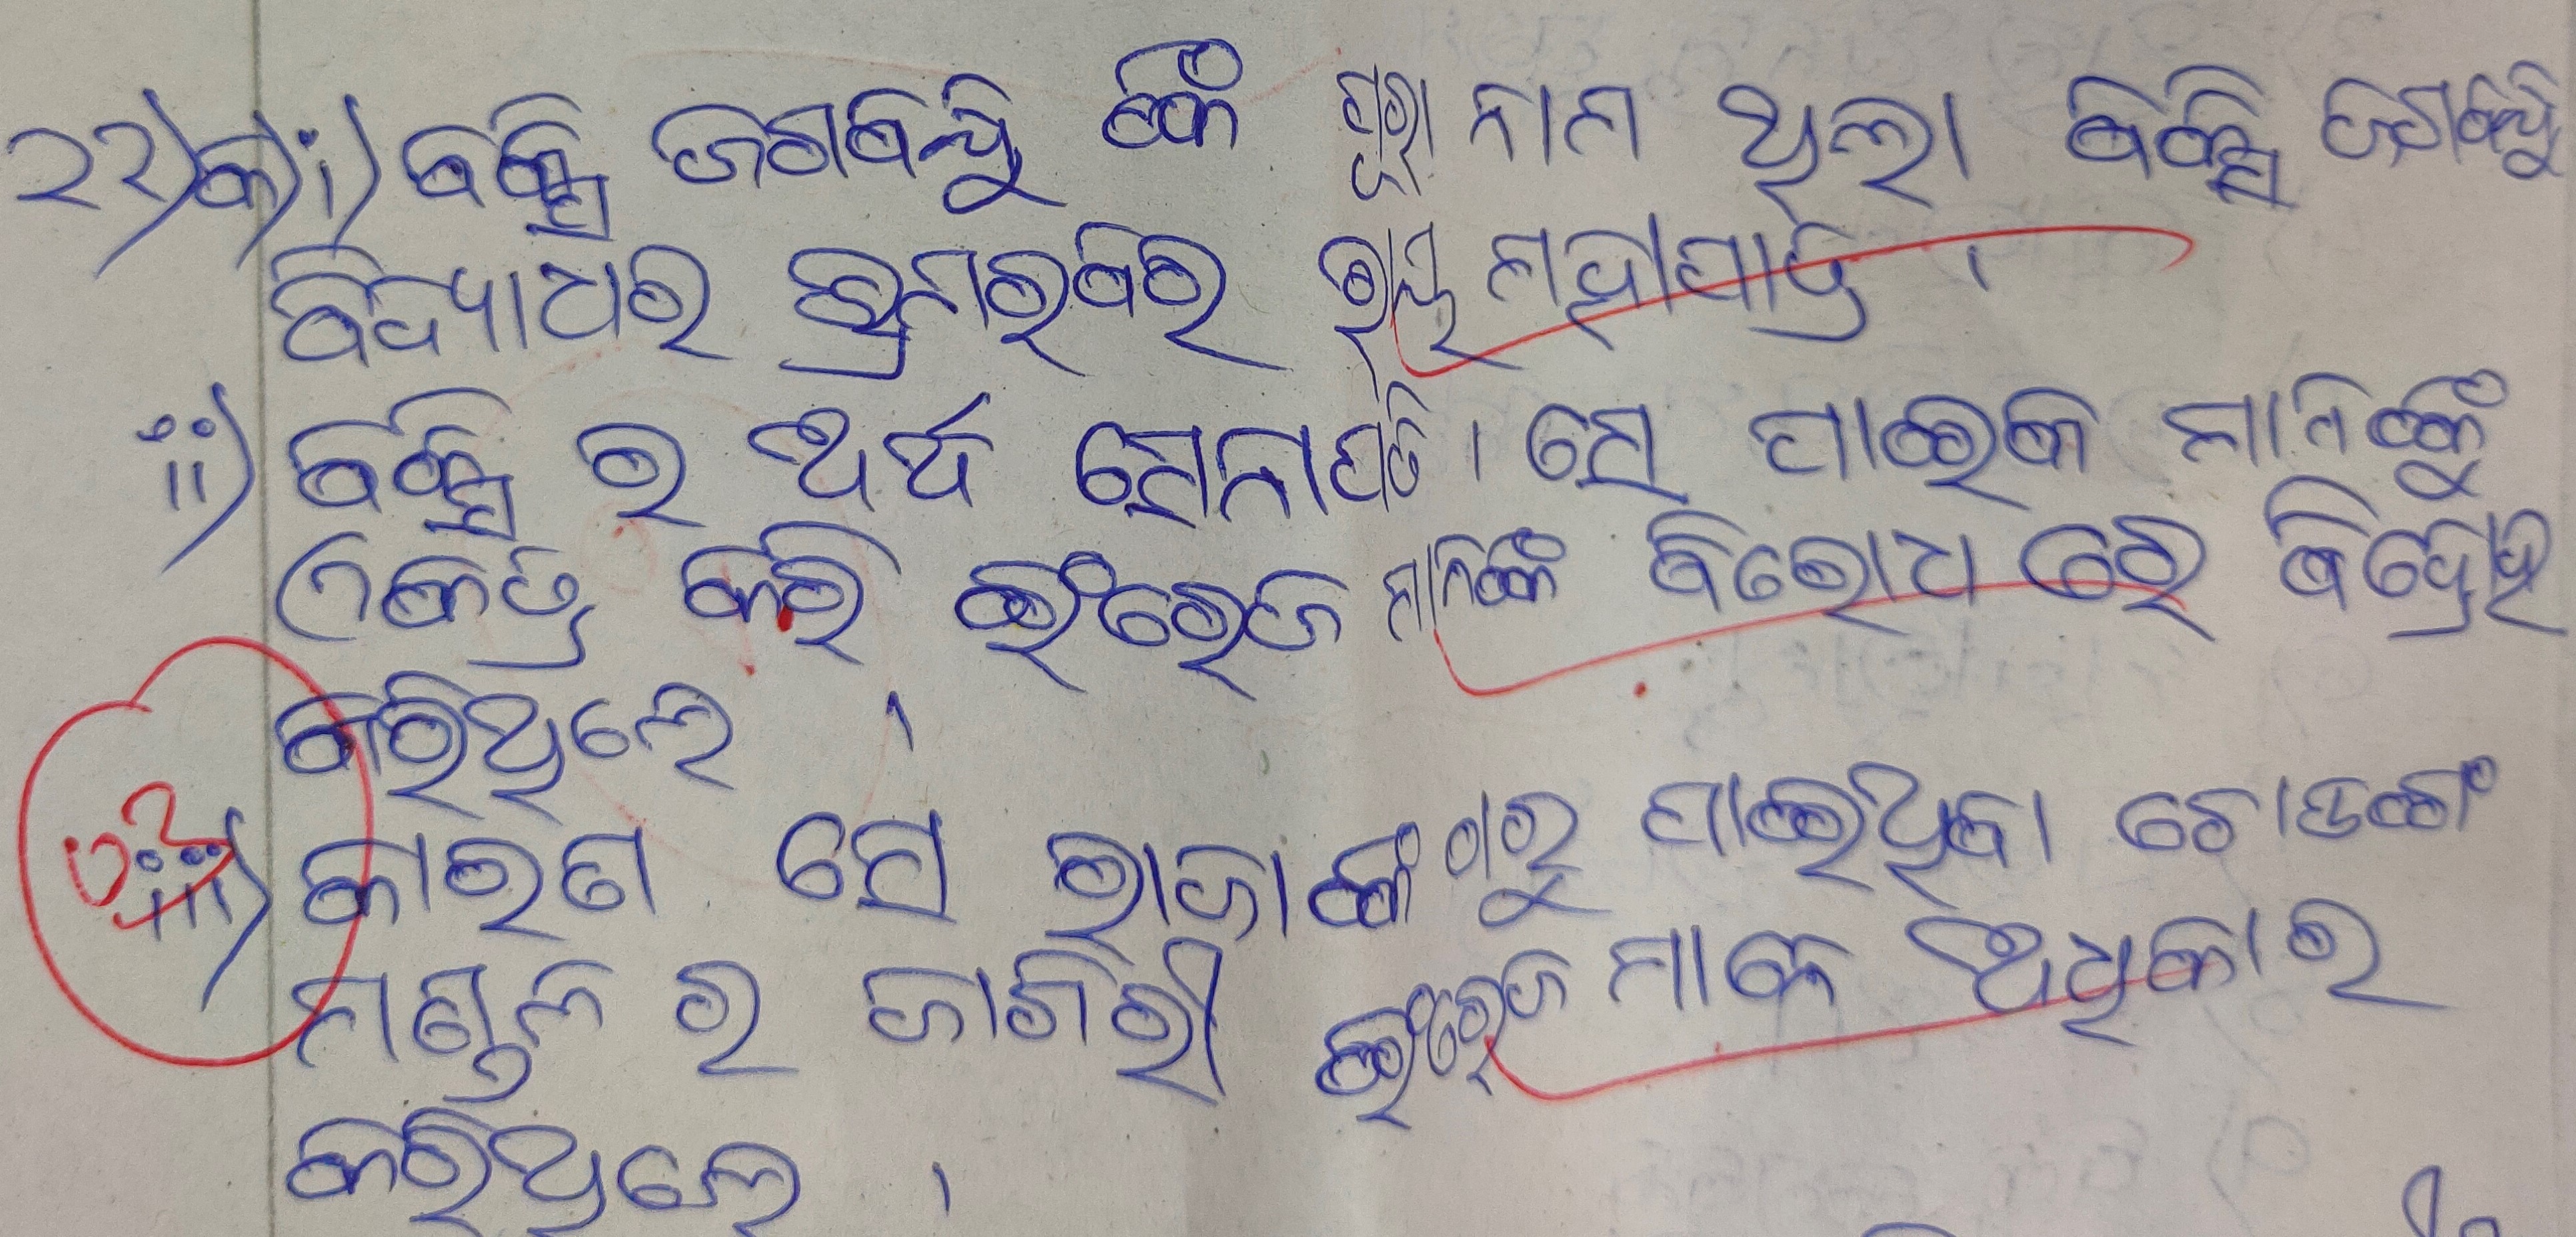 ୨୨)କ)i) ବକ୍ସି ଜଗବନ୍ଧୁ ଙ୍କ ପୁରା ନାମ ଥିଲା ବକ୍ସି ଜଗବନ୍ଧୁ
ବିଦ୍ୟାଧର ଭ୍ରମରବର ରାୟ ମହାପାତ୍ର ।
ii) ବକ୍ସି ର ଅର୍ଥ ସେନାପତି । ସେ ପାଇକ ମାନଙ୍କୁ
ଏକତ୍ର କରି ଇଂରେଜ ମାନଙ୍କ ବିରୋଧ ରେ ବିଦ୍ରୋହ
କରିଥିଲେ ।
iii) କାରଣ ସେ ରାଜା ଙ୍କ ଠାରୁ ପାଇଥିବା ରୋଡଙ୍ଗ
ମଣ୍ଡଳ ର ଜାଗିରୀ ଇଂରେଜ ମାନେ ଅଧିକାର
କରିଥିଲେ ।